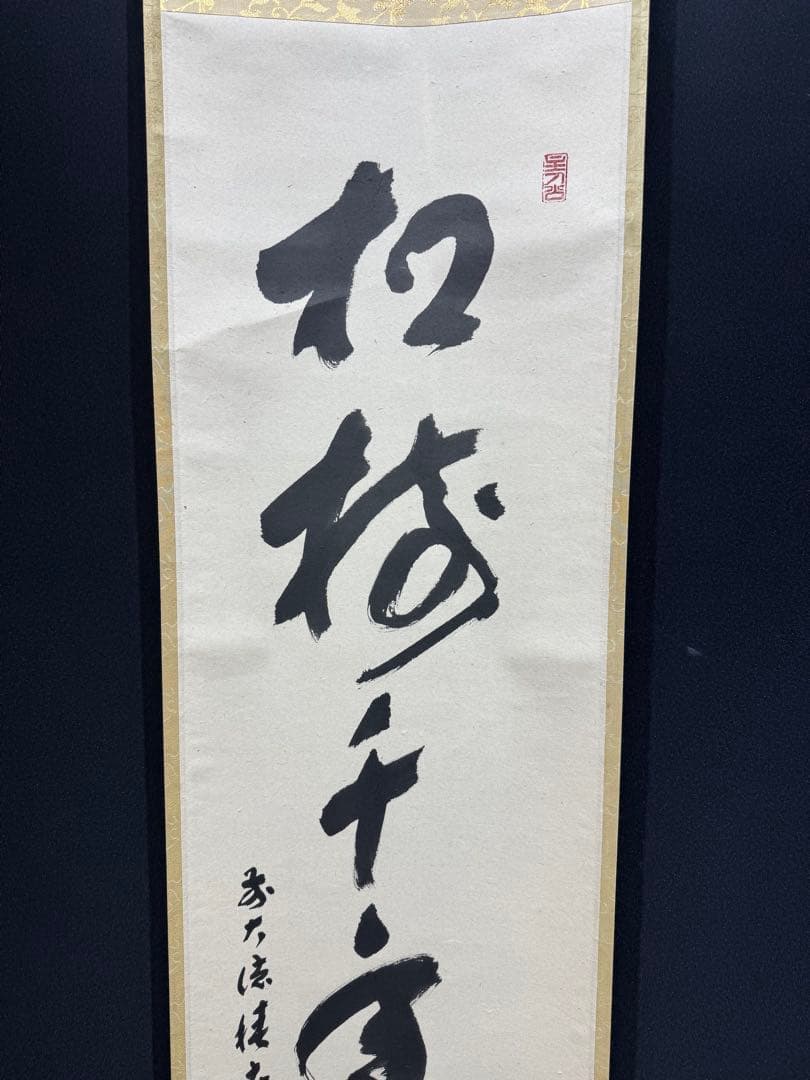 松樹千年
前大徳